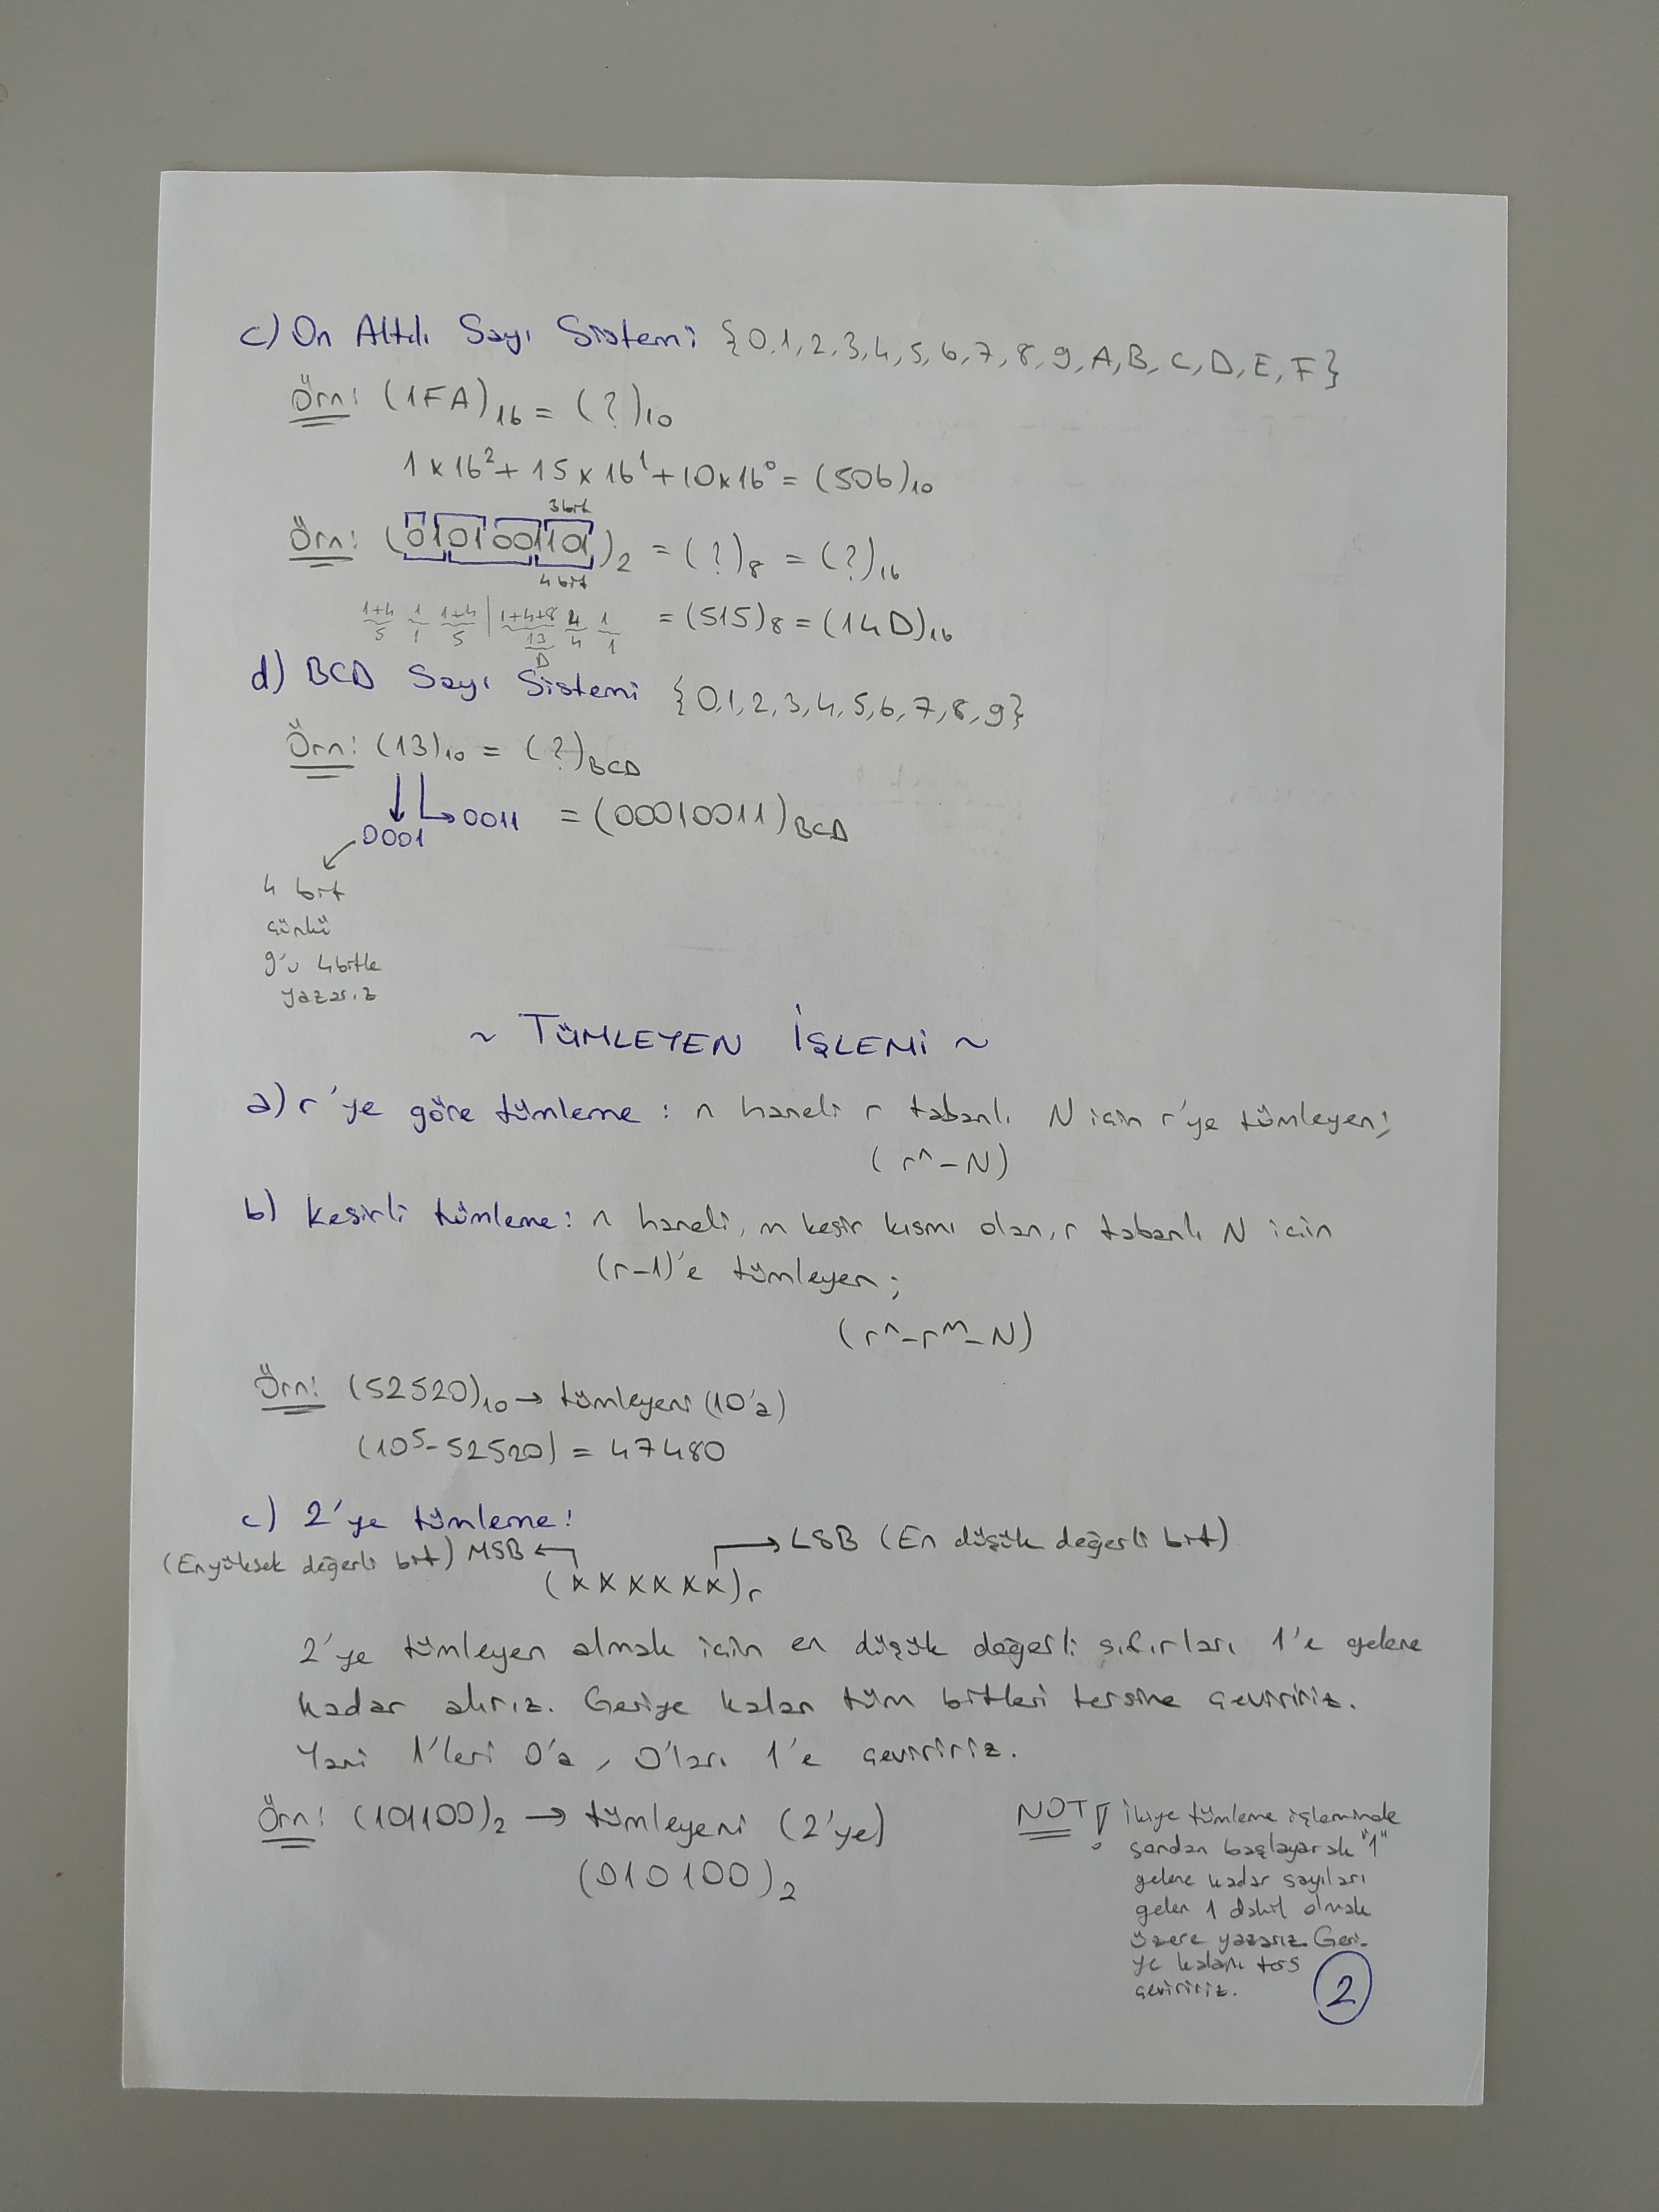 c) On Altılı Sayı Sistemi {0,1,2,3,4,5,6,7,8,9,A,B,C,D,E,F}
Örn: (1FA)₁₆ = (?)₁₀
1x16² + 15x16¹ + 10x16⁰ = (506)₁₀
3 bit
Örn: (0101001101)₂ = (?)₈ = (?)₁₆
4 bit
1+4 1 1+4 1+4+8 4 1 = (515)₈ = (14D)₁₆
5 1 5 13 4 1
D
d) BCD Sayı Sistemi {0,1,2,3,4,5,6,7,8,9}
Örn: (13)₁₀ = (?)BCD
→0011 = (00010011)BCD
0001
4 bit
çünkü
9'u 4 bitle
yazarız
~ TÜMLEYEN İŞLEMİ ~
a) r'ye göre tümleme : n haneli r tabanlı N için r'ye tümleyen;
(rⁿ-N)
b) kesirli tümleme: n haneli, m kesir kısmı olan, r tabanlı N için
(r-1)'e tümleyen;
(rⁿ-rᵐ-N)
Örn: (52520)₁₀ → tümleyeni (10'a)
(10⁵-52520) = 47480
c) 2'ye tümleme:
(En yüksek değerli bit) MSB → LSB (En düşük değerli bit)
(x x x x x x)r
2'ye tümleyen almak için en düşük değerli sıfırları 1'e gelene
kadar alırız. Geriye kalan tüm bitleri tersine çeviririz.
Yani 1'leri 0'a, 0'ları 1'e çeviririz.
Örn: (101100)₂ → tümleyeni (2'ye)
(010100)₂
NOT! ikiye tümleme işleminde
sondan başlayarak "1"
gelene kadar sayıları
gelen 1 dahil olmak
üzere yazarız. Geri-
ye kalanı ters
çeviririz.
2